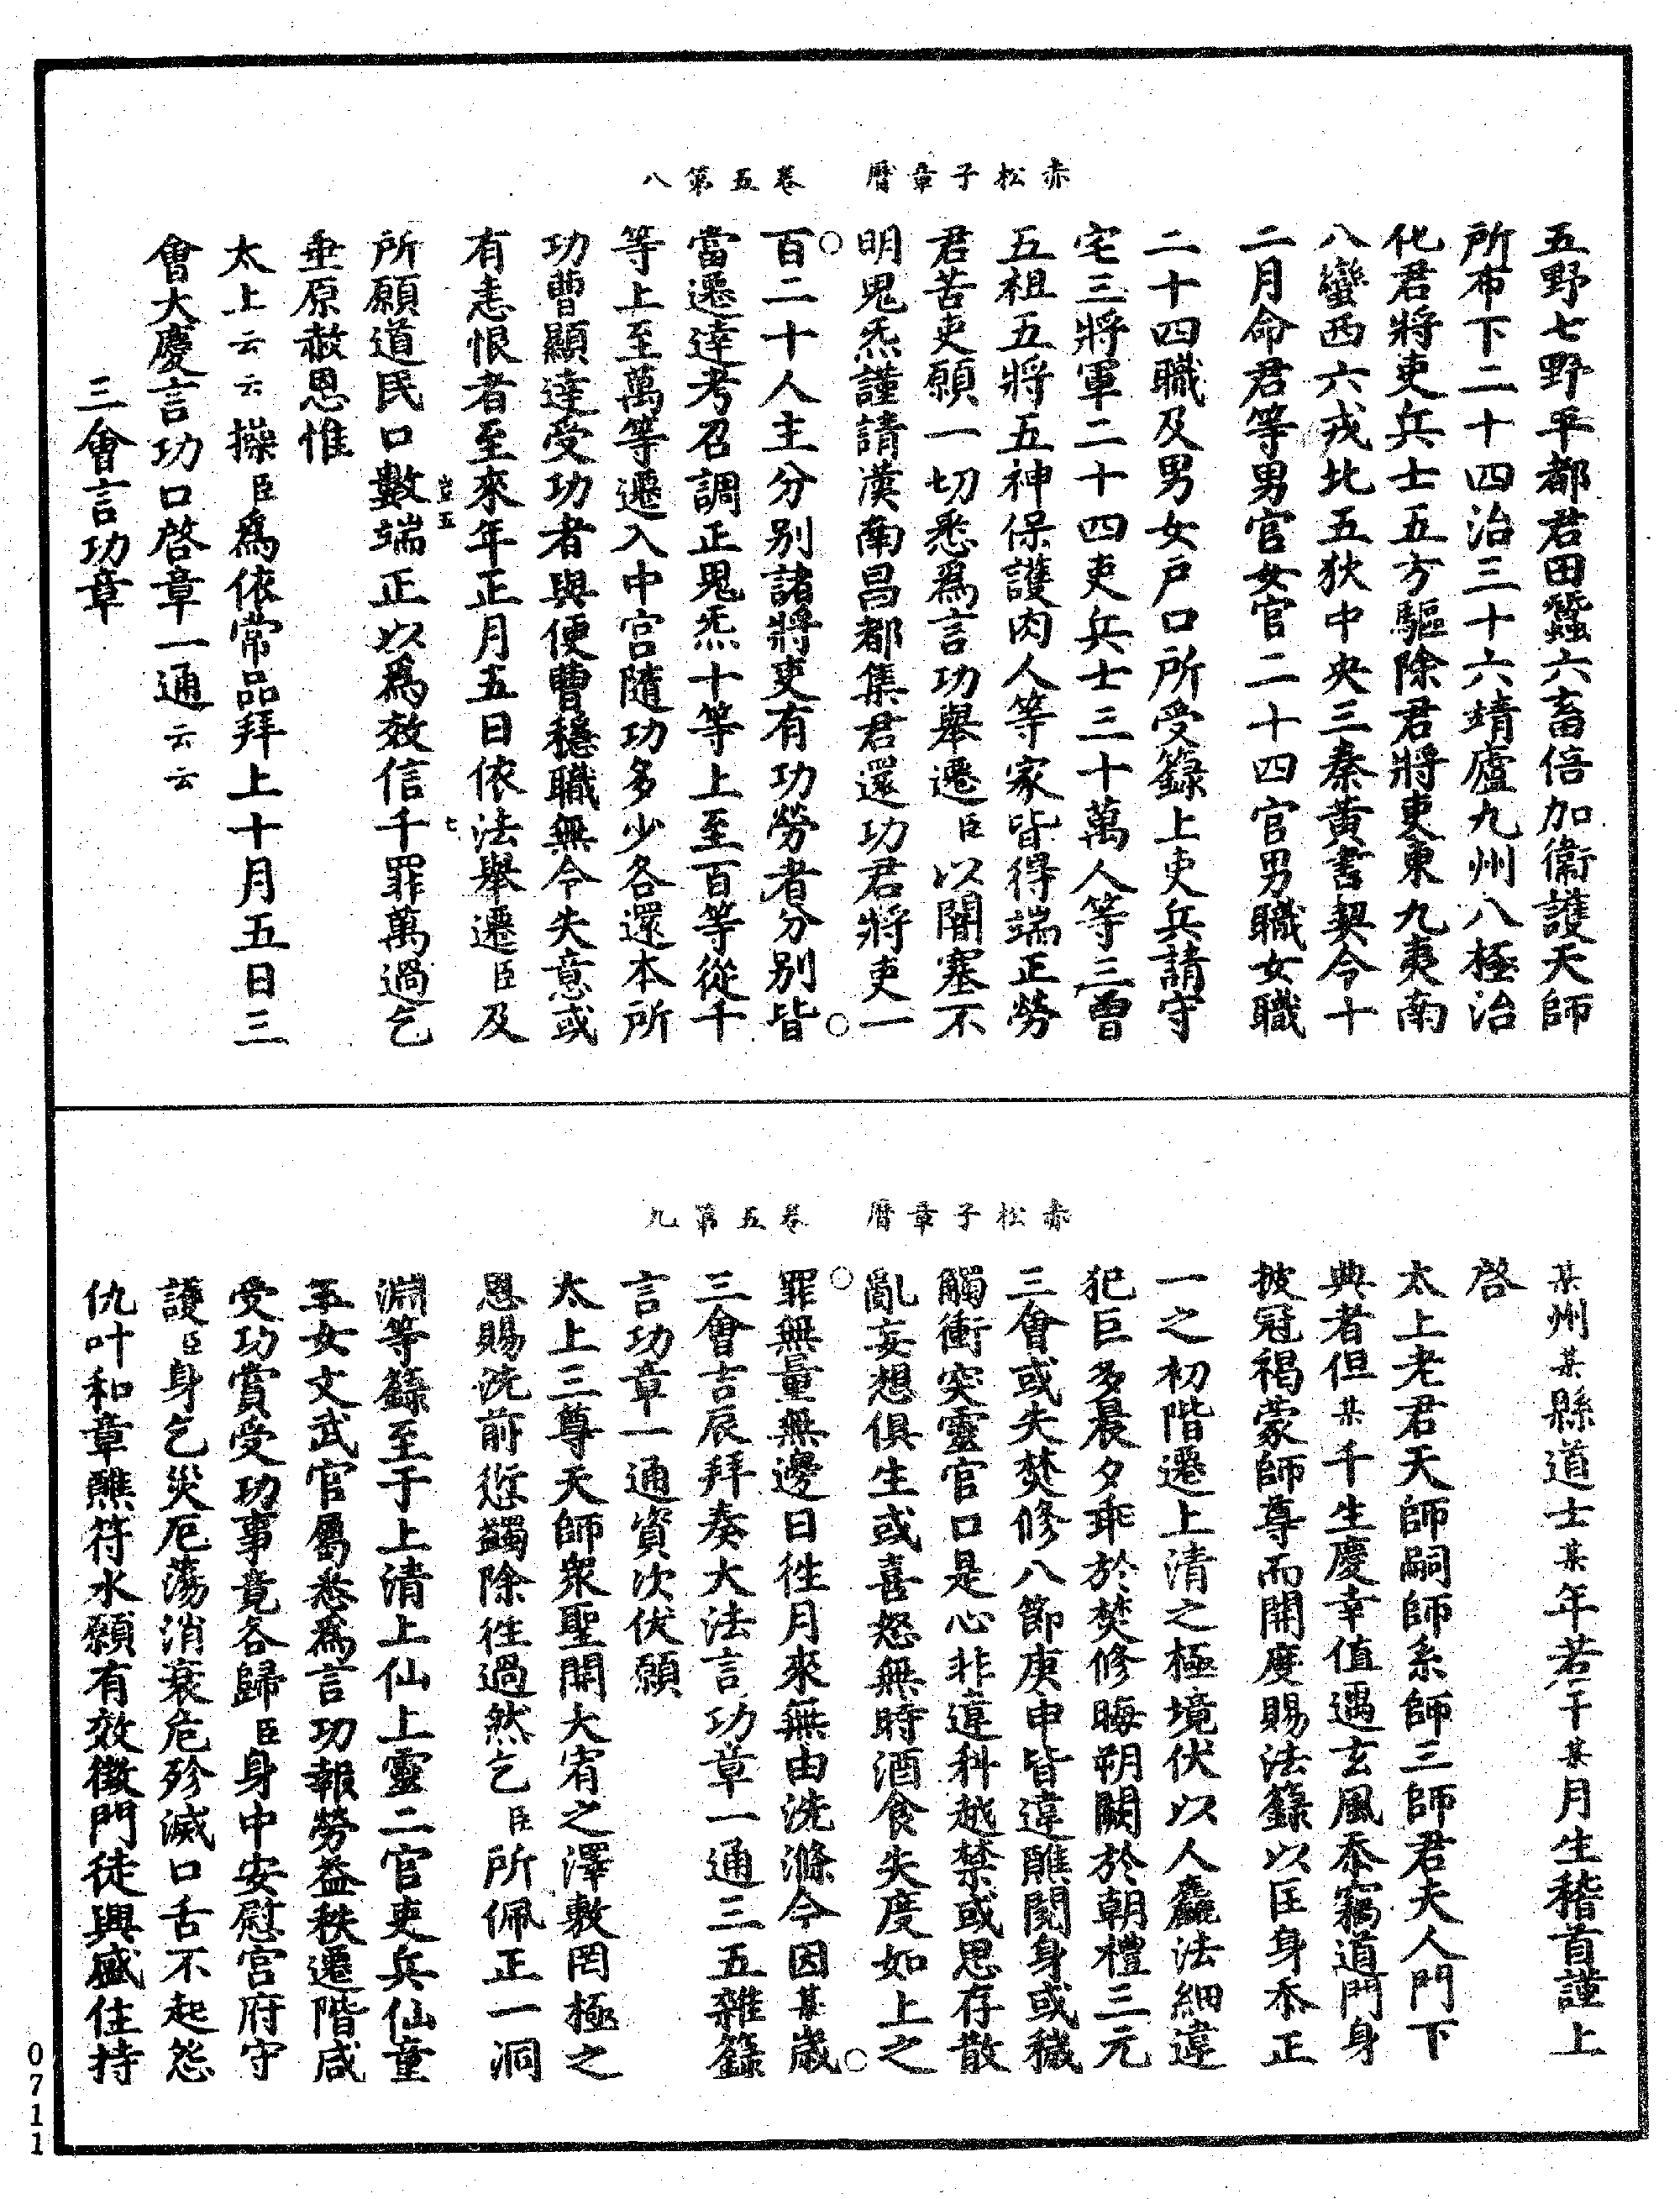 赤松子章曆　卷五第八
五野七野平都君田蠶六畜倍加衞護天師
所布下二十四治三十六靖廬九州八極治
化君將吏兵士五方驅除君將吏東九夷南
八蠻西六戎北五狄中央三秦黃書契令十
二月命君等男官女官二十四官男職女職
二十四職及男女戶口所受籙上吏兵請守
宅三將軍二十四吏兵士三十萬人等三曾
五祖五將五神保護肉人等家皆得端正勞
君苦吏願一切悉爲言功舉遷臣以闇塞不
明鬼炁謹請漢南昌都集君還功君將吏一
百二十人主分別諸將吏有功勞者分別皆
當遷達考召調正鬼炁十等上至百等從千
等上至萬等遷入中宮隨功多少各還本所
功曹顯達受功者與便曹穩職無令失意或
有恚恨者至來年正月五日依法舉遷臣及
豈五　七
所願道民口數端正以爲效信千罪萬過乞
垂原赦恩惟
太上云云操臣爲依常品拜上十月五日三
會大慶言功口啓章一通云云
三會言功章
赤松子章曆　卷五第九
某州某縣道士某年若干某月生稽首謹上
啓
太上老君天師嗣師系師三師君夫人門下
典者但某千生慶幸值遇玄風忝竊道門身
披冠褐蒙師尊而開度賜法籙以匡身忝正
一之初階遷上清之極境伏以人麤法細違
犯巨多晨夕乖於焚修晦朔闕於朝禮三元
三會或失焚修八節庚申皆違醮閱身或穢
觸衝突靈官口是心非違科越禁或思存散
亂妄想俱生或喜怒無時酒食失度如上之
罪無量無邊日往月來無由洗滌今因某歲
三會吉辰拜奏大法言功章一通三五雜籙
言功章一通資次伏願
太上三尊天師衆聖開大宥之澤敷罔極之
恩賜洗前愆蠲除往過然乞臣所佩正一洞
淵等籙至于上清上仙上靈二官吏兵仙童
玉女文武官屬悉爲言功報勞益秩遷階咸
受功賞受功事竟各歸臣身中安慰宮府守
護臣身乞災厄蕩消衰危殄滅口舌不起怨
仇叶和章醮符水願有效徵門徒興盛住持
0711